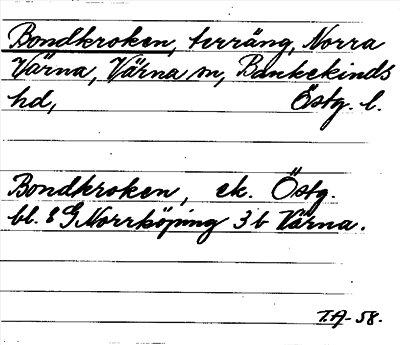 Bondkroken, terräng, Norra
Värna, Värna sn, Bankekinds
hd, Östg. l.
Bondkroken, ek. Östg.
bl. 8 G Norrköping 3 b Värna.
T.A-58.